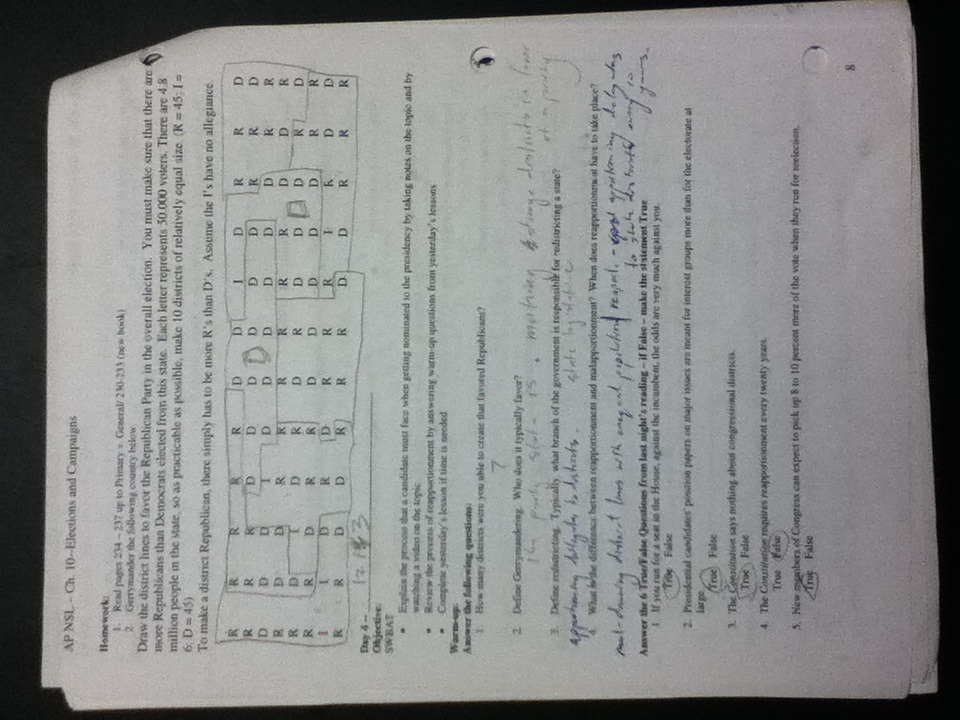 AP NSL – Ch. 10--Elections and Campaigns
Homework:
1. Read pages 234 – 237 up to Primary v. General/ 230-233 (new book)
2. Gerrymander the following country below
Draw the district lines to favor the Republican Party in the overall election. You must make sure that there are
more Republicans than Democrats elected from this state. Each letter represents 50,000 voters. There are 4.8
million people in the state, so as practicable as possible, make 10 districts of relatively equal size. (R = 45; I =
6; D = 45)
To make a district Republican, there simply has to be more R's than D's. Assume the I's have no allegiance.
R R R R R D D I D R R D
R R R D D D D D D R R R
D D D I D D D D D D R R
R D D R R R R R R D D R
R D I D R D R D D D R D
R R D R R D D D D D R R
I I D R D R R R I R D D
R R D D R R R D D R R R
D
D
Day 4 –
Objective:
SWBAT
• Explain the process that a candidate must face when getting nominated to the presidency by taking notes on the topic and by
watching a video on the topic
• Review the process of reapportionment by answering warm-up questions from yesterday's lessons
• Complete yesterday's lesson if time is needed
Warm-up:
Answer the following questions:
1. How many districts were you able to create that favored Republicans?
7
2. Define Gerrymandering. Who does it typically favor?
the party state is. strange districts in favor
of a party
3. Define redistricting. Typically, what branch of the government is responsible for redistricting a state?
apportioning delegates to districts. state legislature
4. What is the difference between reapportionment and malapportionment? When does reapportionment have to take place?
mal-drawing district lines with unequal population reapport. - apportioning delegates
to state districts every 10
years.
Answer the 6 True/False Questions from last night's reading – if False – make the statement True
1. If you run for a seat in the House, against the incumbent, the odds are very much against you.
True False
2. Presidential candidates' position papers on major issues are meant for interest groups more than for the electorate at
large.
True False
3. The Constitution says nothing about congressional districts.
True False
4. The Constitution requires reapportionment every twenty years.
True False
5. New members of Congress can expect to pick up 8 to 10 percent more of the vote when they run for reelection.
True False
8